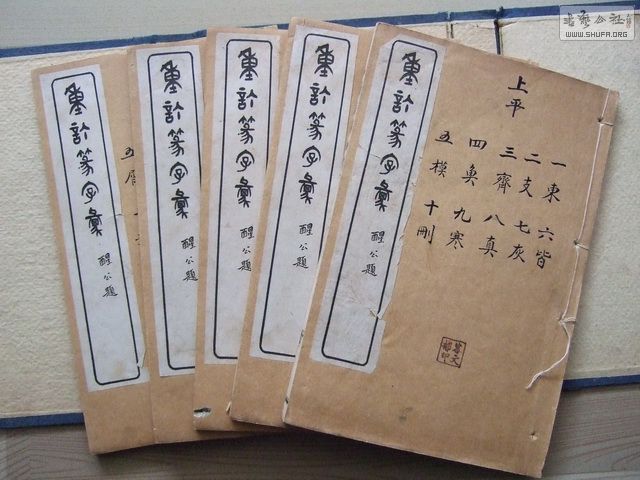 書法公社
WWW.SHUFA.ORG
上平
一東 六皆
二支 七灰
三齊 八真
四魚 九寒
五模 十刪
重訂篆字彙
醒公題
重訂篆字彙
醒公題
重訂篆字彙
醒公題
重訂篆字彙
醒公題
重訂篆字彙
醒公題
五屑